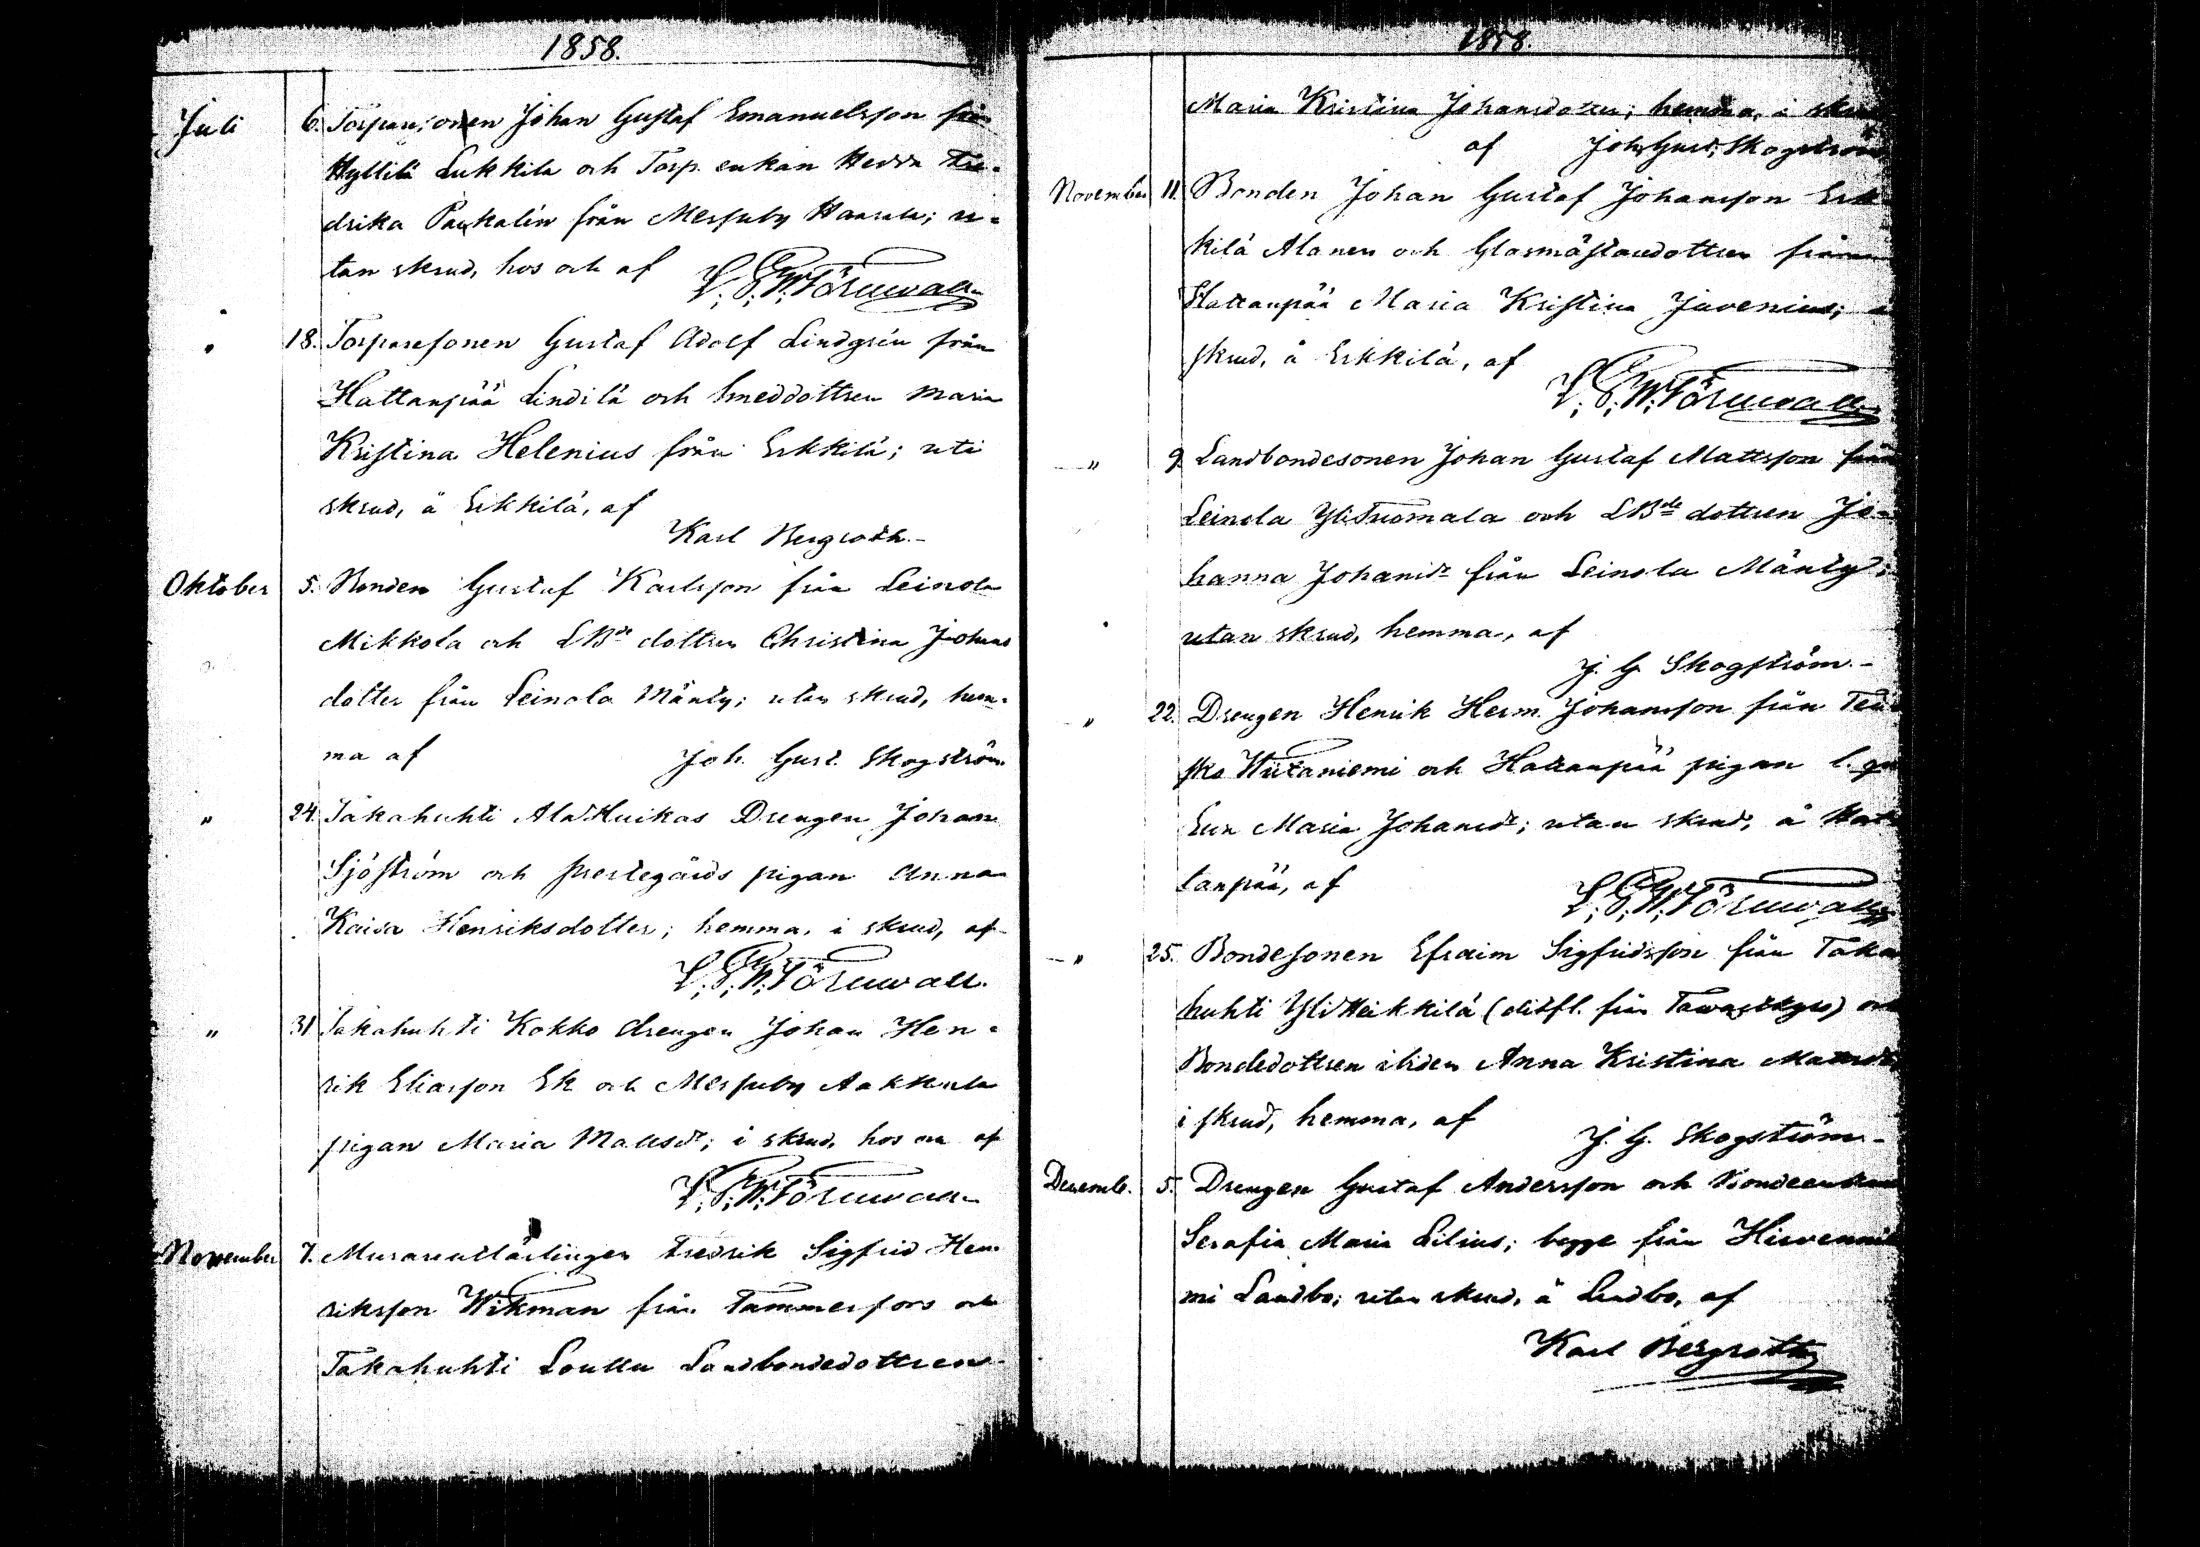 1858.
Juli 6. Torparesonen Johan Gustaf Emanuelsson från
Hyllilä Lukkila och Torp. enkan Hedda Fre-
drika Paukalin från Messuby Haarala; u-
tan skrud, hos och af L. G. W. Törnwall
" 18. Torparesonen Gustaf Adolf Lindgrén från
Hattanpää Lindilä och Smeddottren Maria
Kristina Helenius från Erkkilä; uti
skrud, å Erkkilä, af
Karl Bergroth.-
Oktober 5. Bonden Gustaf Karlsson från Leinola
Mikkola och LBde dottren Christina Johans
dotter från Leinola Mänty; utan skrud, hem-
ma af Joh. Gust. Skogström
" 24. Takahuhti Ala Huikas Drengen Johan
Sjöström och prestegårds pigan Anna
Kaisa Henriksdotter; hemma, i skrud, af
L. G. W. Törnwall.
" 31 Takahuhti Kokko drengen Johan Hen-
rik Eliasson Ek och Messuby Aakkula
pigan Maria Mattsdr; i skrud, hos och af
L. G. W. Törnwall
November 7. Murarelärlingen Fredrik Sigfrid Hen-
riksson Wikman från Tammerfors och
Takahuhti Loullu Landbondedottren
1858.
Maria Kristina Johansdotter; hemma, i skrud
af Joh. Gust. Skogström
November 11. Bonden Johan Gustaf Johansson Erk
kilä Alanen och Glasmästaredottren från
Hattanpää Maria Kristina Juvenius; i
skrud, å Erkkilä, af
L. G. W. Törnwall
" 9. Landbondesonen Johan Gustaf Mattsson från
Leinola Yli Tuomala och LBde dottren Jo-
hanna Johansdr från Leinola Mänty;
utan skrud, hemma, af
J. G. Skogström.-
" 22. Drengen Henrik Herm. Johansson från Teis
sko Wiitaniemi och Hattanpää pigan
Eva Maria Johansdr; utan skrud, å Hat
tanpää, af
L. G. W. Törnwall
" 25. Bondesonen Efraim Sigfridsson från Taka
huhti Yli Heikkilä (ditfl. från Tawastkyro) och
Bondedottren Anna Kristina Mattsdr
i skrud, hemma, af
J. G. Skogström-
Decemb. 5. Drengen Gustaf Andersson och Bondeenkan
Serafia Maria Lilius; begge från Hirvennie
mi Landbo; utan skrud, å Landbo, af
Karl Bergroth